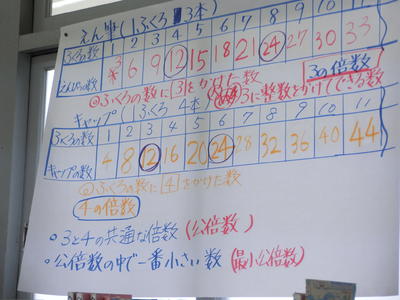 えん筆(1ふくろ 3本)
ふくろの数 1 2 3 4 5 6 7 8 9 10 11
えんぴつの数 3 6 9 12 15 18 21 24 27 30 33
◎ふくろの数に3をかけた数
3の倍数
3に整数をかけてできる数
キャップ(1ふくろ 4本)
ふくろの数 1 2 3 4 5 6 7 8 9 10 11
キャップの数 4 8 12 16 20 24 28 32 36 40 44
◎ふくろの数に4をかけた数
4の倍数
○3と4の共通な倍数(公倍数)
○公倍数の中で一番小さい数(最小公倍数)